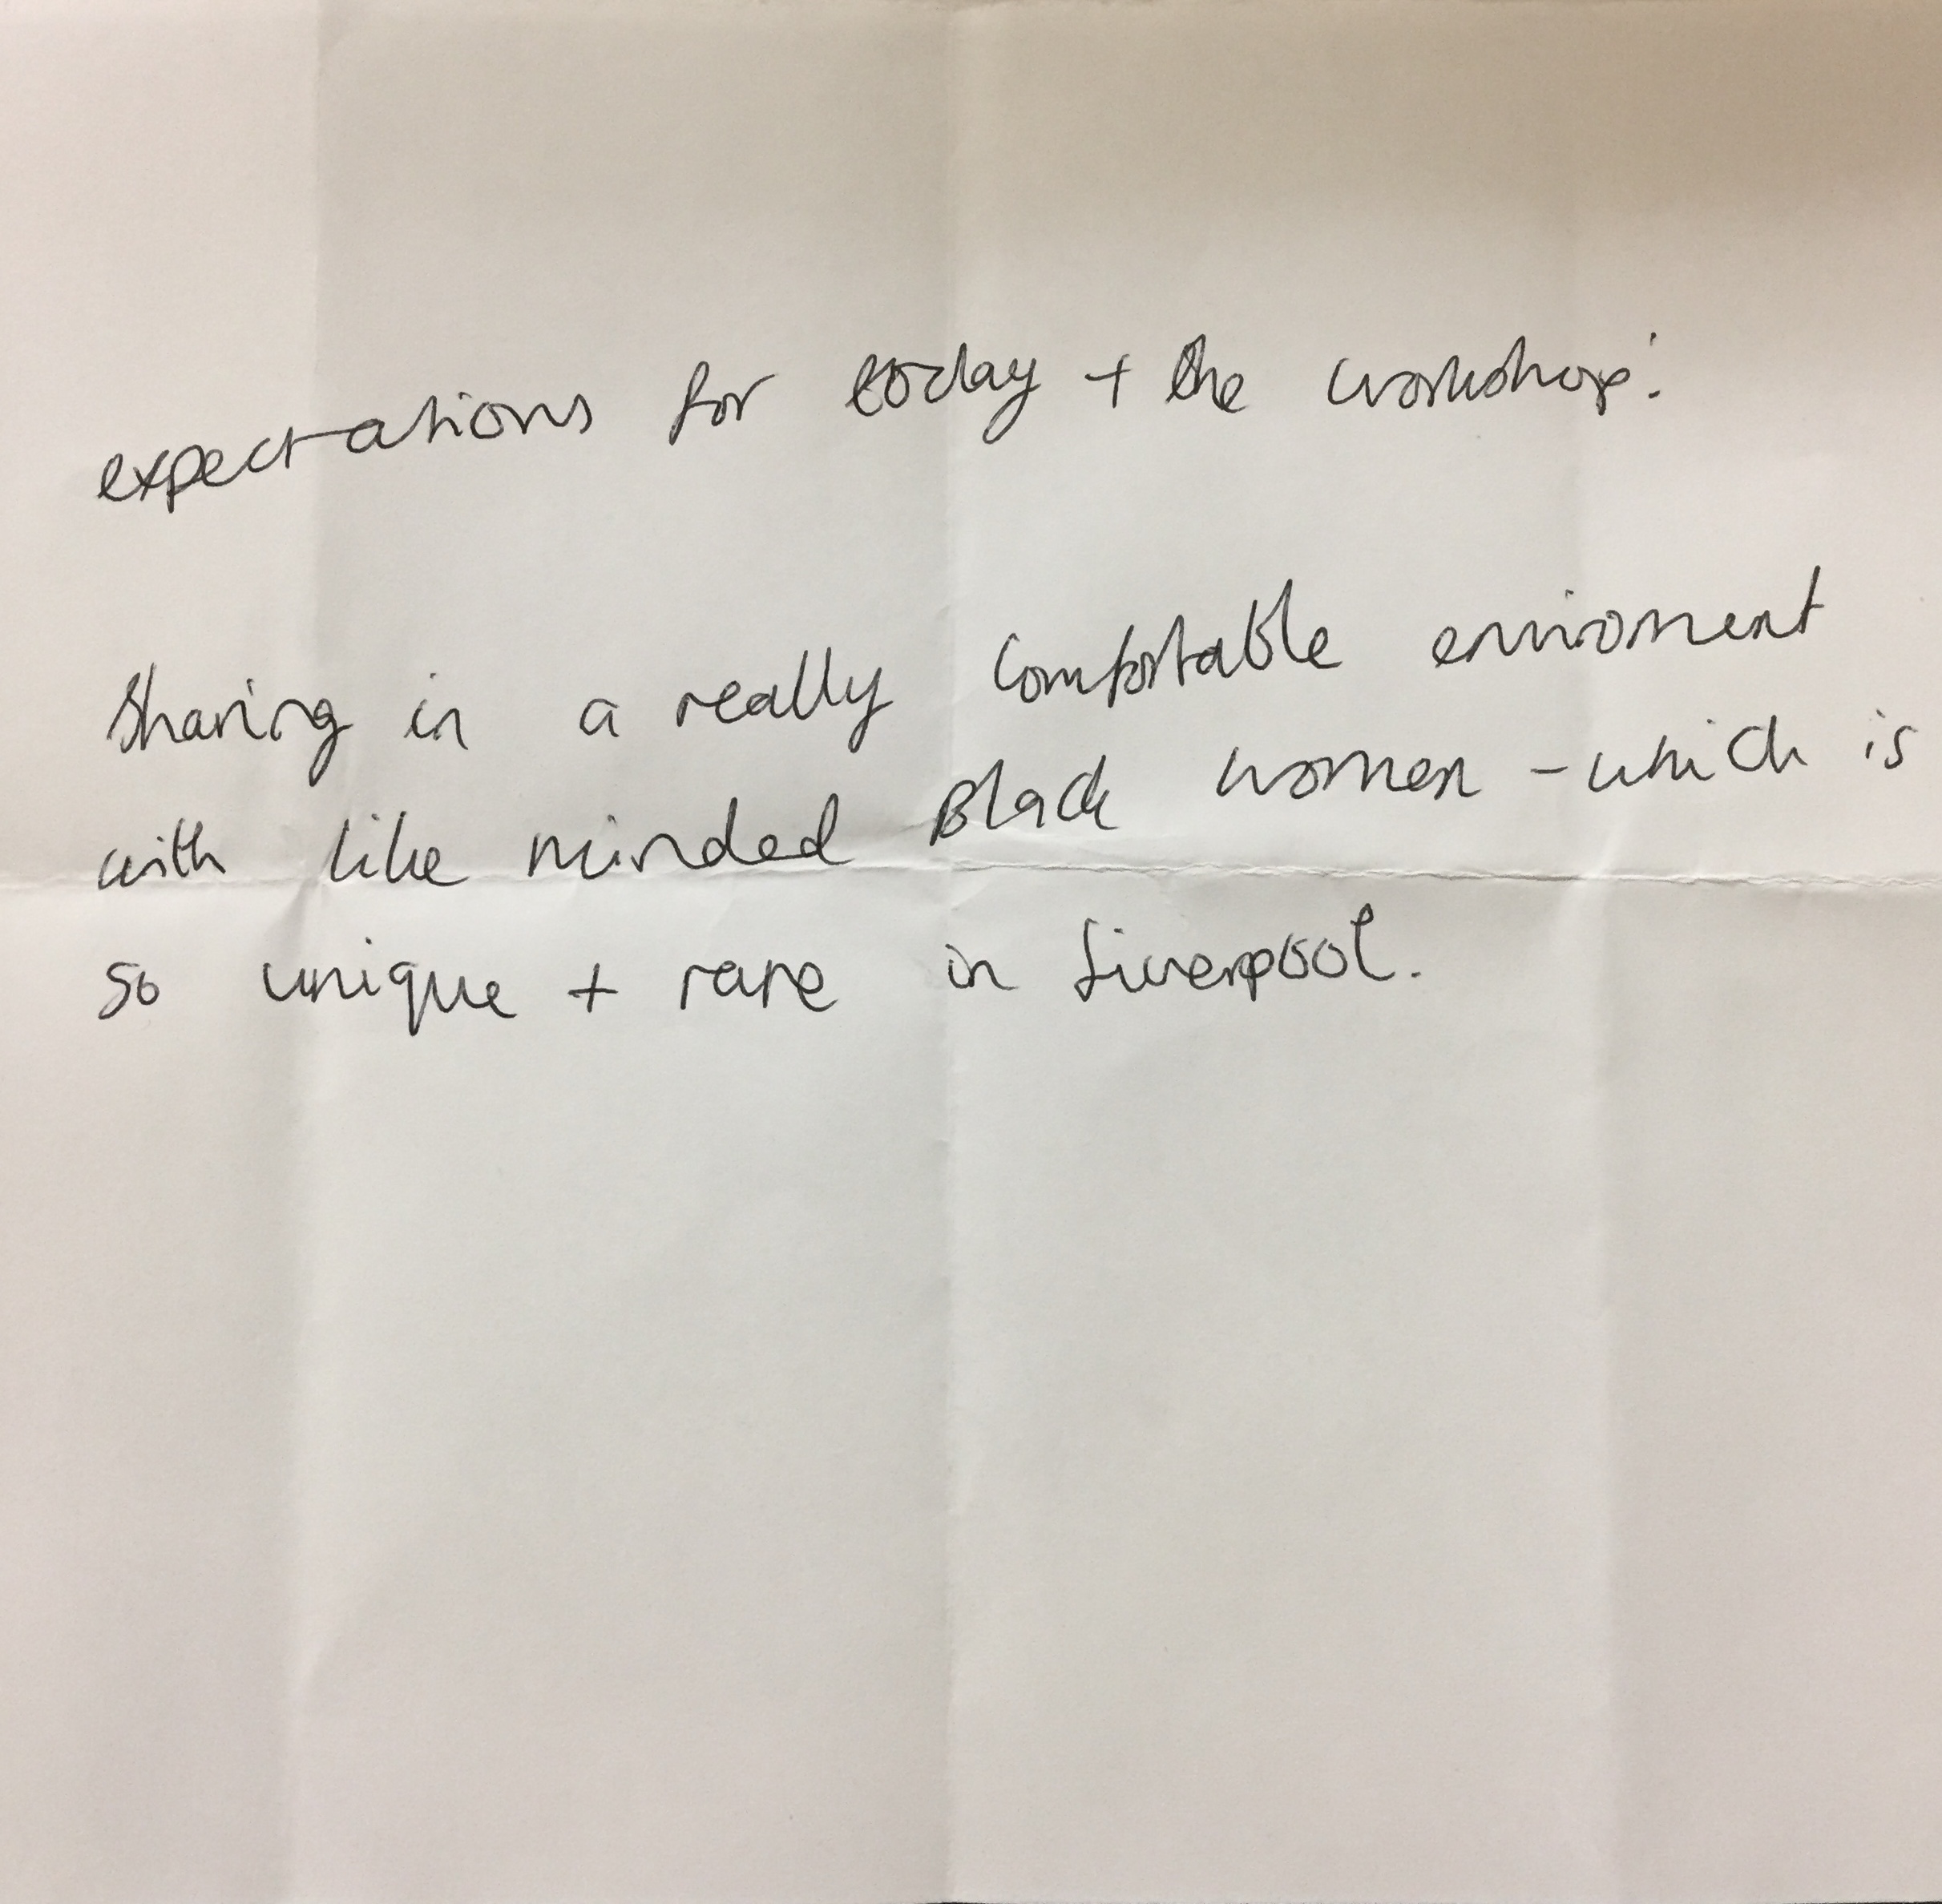 expectations for today + the workshop:
Sharing in a really comfortable enviroment
with like minded Black women - which is
so unique + rare in Liverpool.